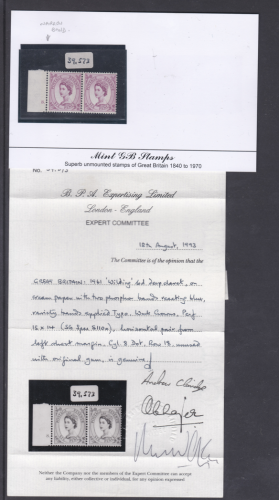 39,573
Mint GB Stamps
Superb unmounted stamps of Great Britain 1840 to 1970
No.
B. P. A. Expertising Limited
London - England
EXPERT COMMITTEE
12th August, 1992
The Committee is of the opinion that the
GREAT BRITAIN: 1961 'Wilding' 6d deep claret, on
cream paper with two phosphor bands reacting blue,
variety bands applied Typo, Wmk Crowns, Perf.
15 x 14 (SG Spec S110a), horizontal pair from
left sheet margin, Cyl. 8 Dot, Row 13, unused
with original gum, is genuine
39,573
Neither the Company nor the members of the Expert Committee can accept
any liability, either collective or individual, for any opinion expressed.